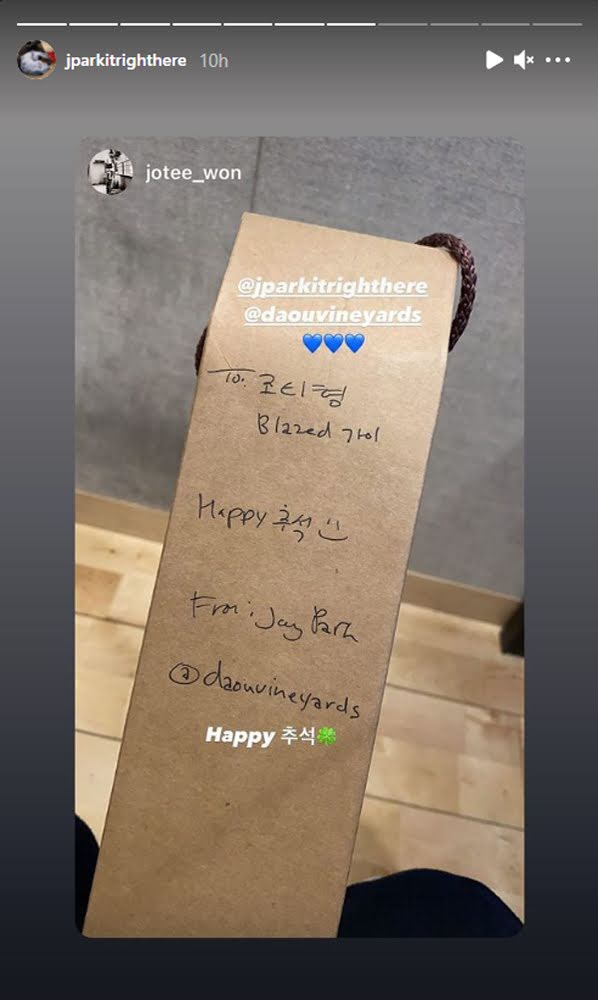 jparkitrighthere 10h
jotee_won
@jparkitrighthere
@daouvineyards
💙💙💙
To: 조티형
Blazed 가이
Happy 추석 :)
From: Jay Park
@daouvineyards
Happy 추석🍀